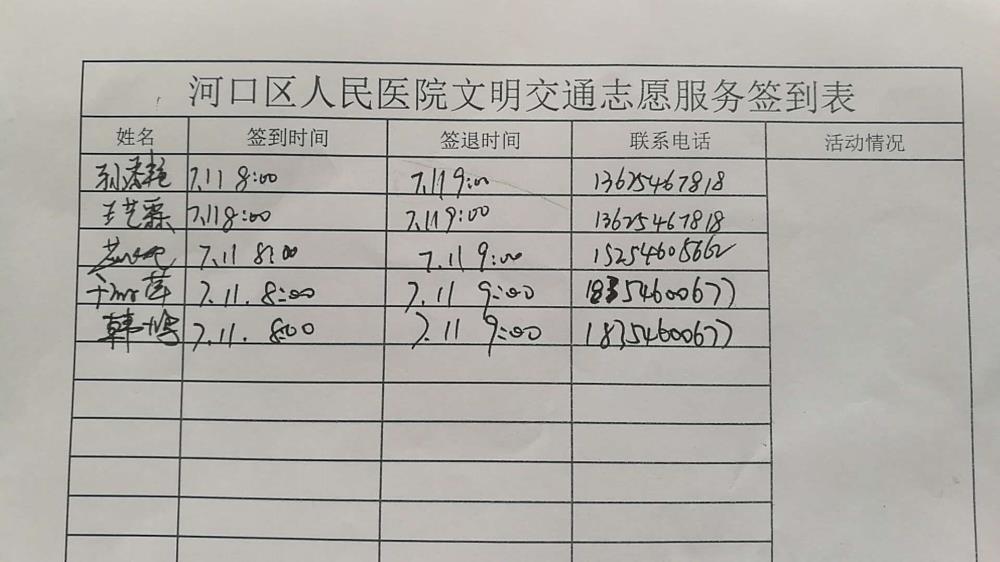 河口区人民医院文明交通志愿服务签到表
姓名 签到时间 签退时间 联系电话 活动情况
孙 艳 7.11 8:00 7.11 9:00 13625467818
王艺霖 7.11 8:00 7.11 9:00 13625467818
7.11 8:00 7.11 9:00 15254605662
于 萍 7.11. 8:00 7.11 9:00 18354600677
韩 7.11. 8:00 7.11 9:00 18354600677